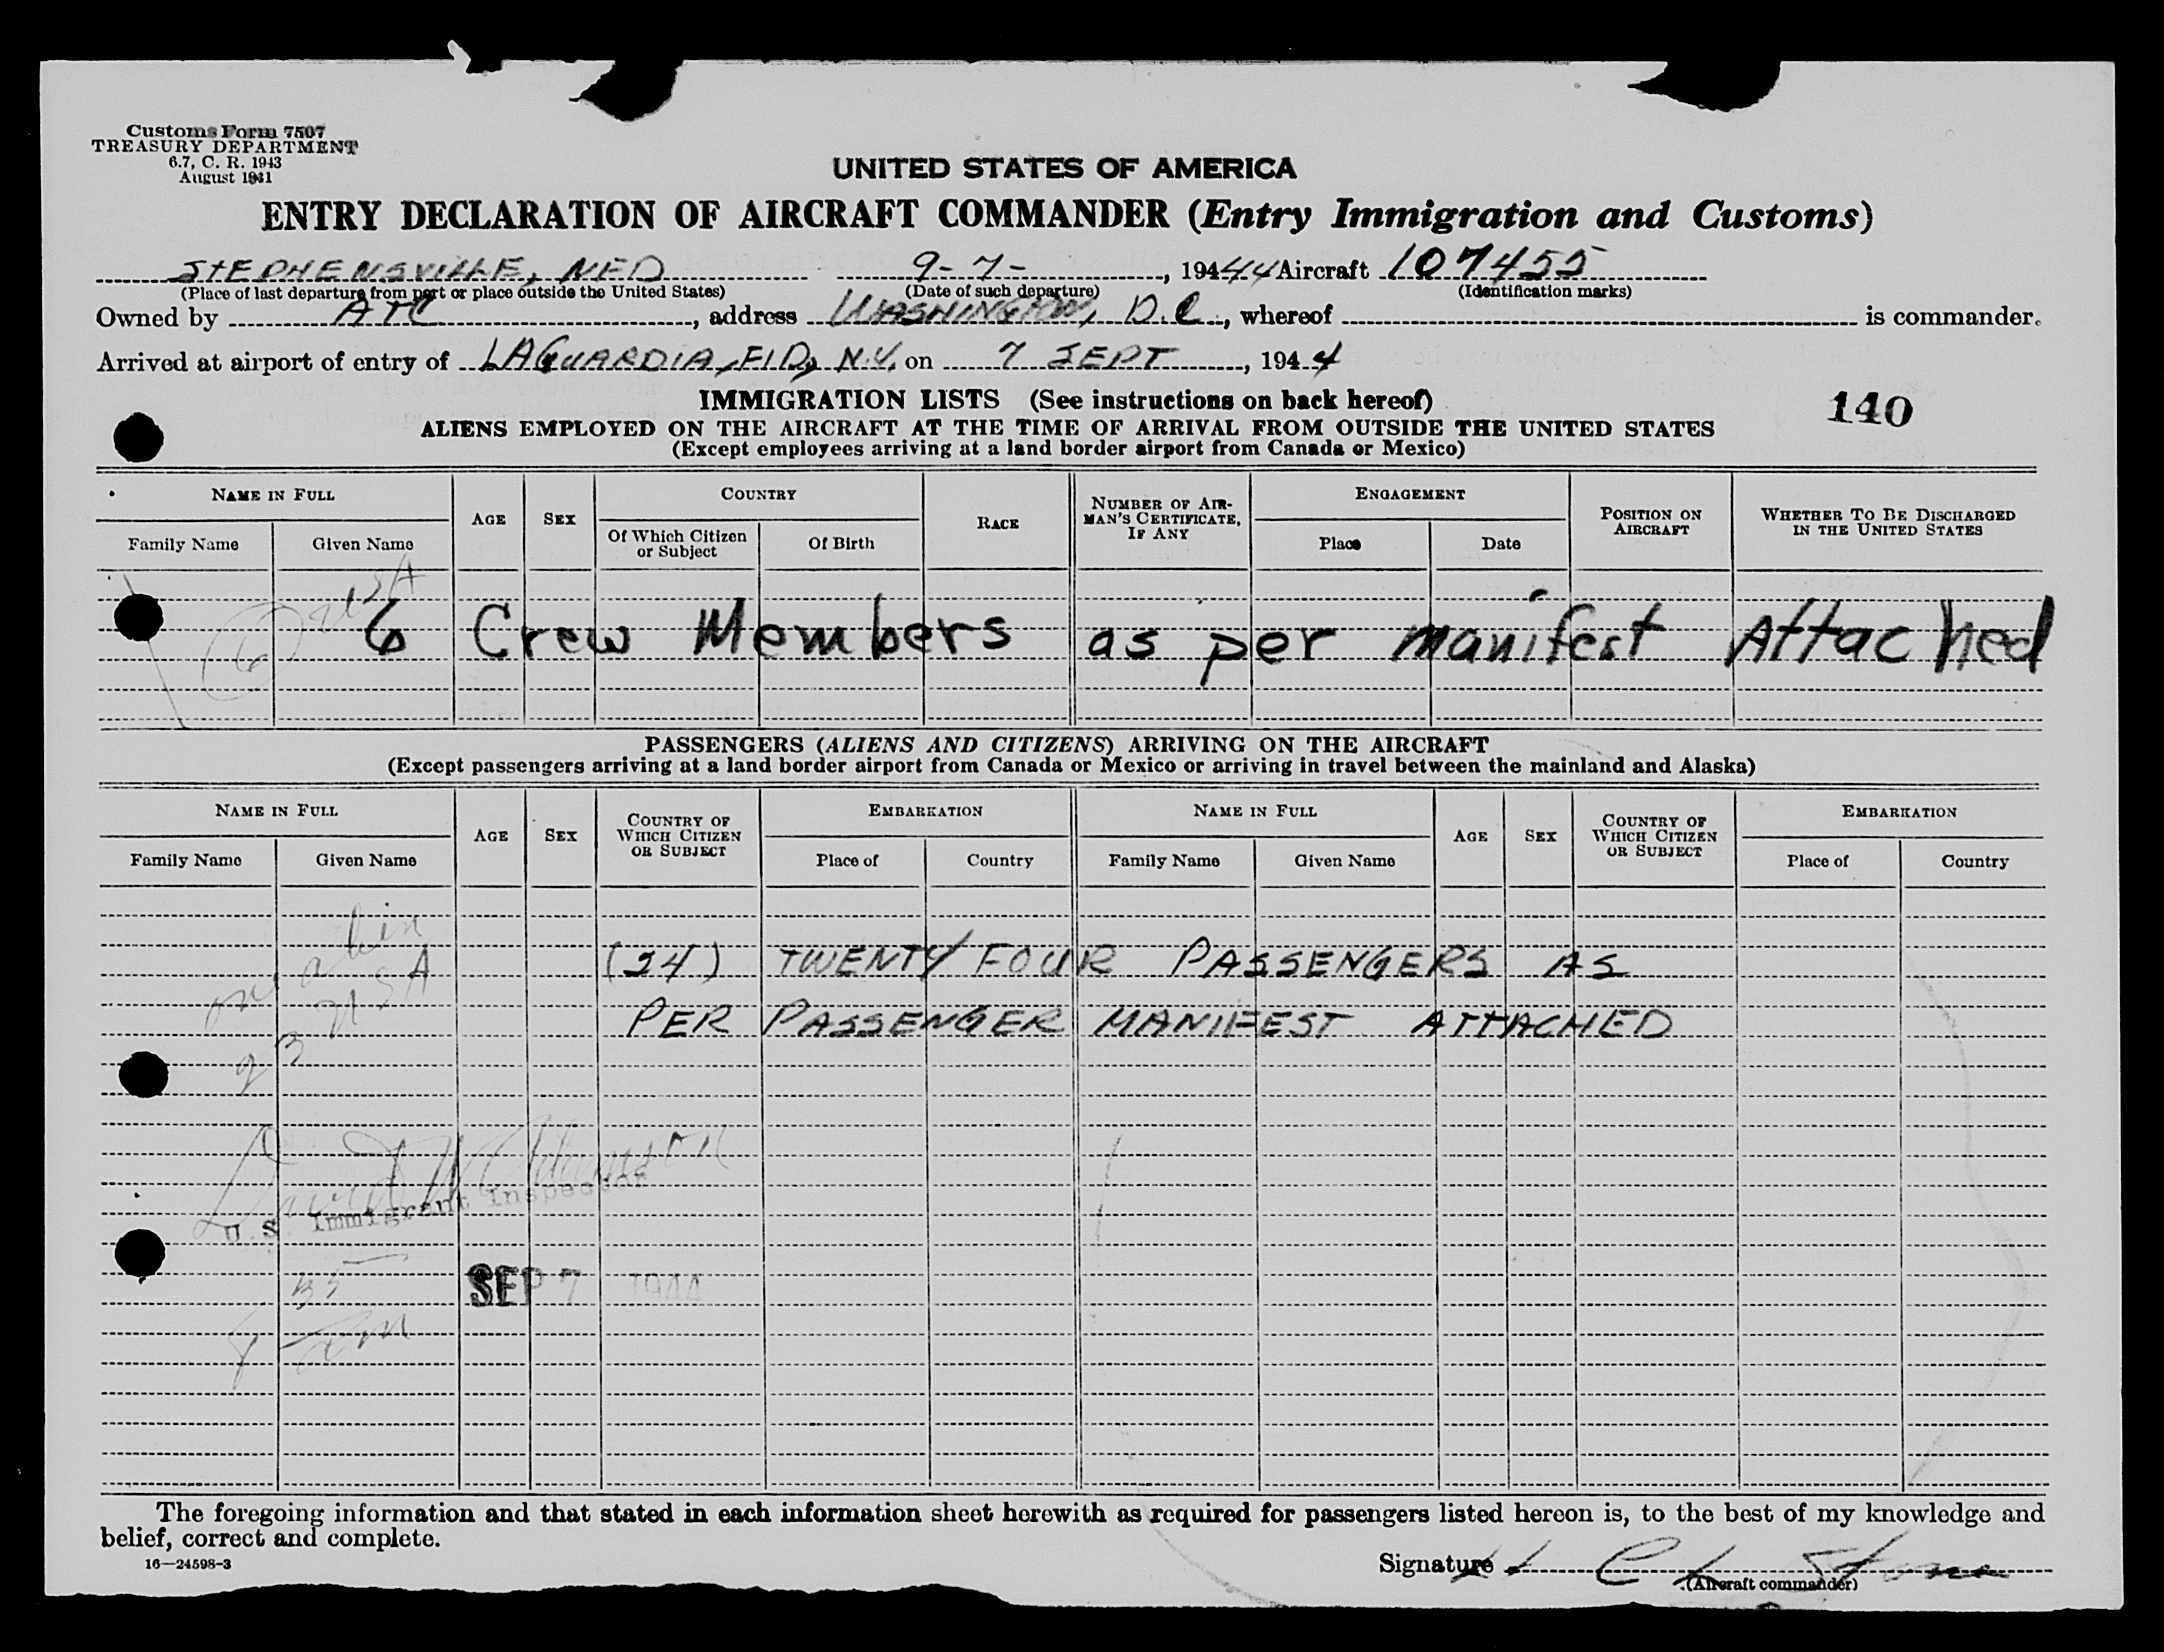 Customs Form 7507
TREASURY DEPARTMENT
6.7, C. R. 1943
August 1941
UNITED STATES OF AMERICA
ENTRY DECLARATION OF AIRCRAFT COMMANDER (Entry Immigration and Customs)
STEPHENSVILLE, NFD 9-7-, 19444 Aircraft 107455
(Place of last departure from port or place outside the United States) (Date of such departure) (Identification marks)
Owned by ATC, address WASHINGTON, D.C., whereof is commander.
Arrived at airport of entry of LAGUARDIA, FLD, N.Y. on 7 SEPT, 1944
IMMIGRATION LISTS (See instructions on back hereof)
140
ALIENS EMPLOYED ON THE AIRCRAFT AT THE TIME OF ARRIVAL FROM OUTSIDE THE UNITED STATES
(Except employees arriving at a land border airport from Canada or Mexico)
NAME IN FULL AGE SEX COUNTRY RACE NUMBER OF AIRMAN'S CERTIFICATE, IF ANY ENGAGEMENT POSITION ON AIRCRAFT WHETHER TO BE DISCHARGED IN THE UNITED STATES
Family Name Given Name Of Which Citizen or Subject Of Birth Place Date
(6) USA
6 Crew Members as per manifest Attached
PASSENGERS (ALIENS AND CITIZENS) ARRIVING ON THE AIRCRAFT
(Except passengers arriving at a land border airport from Canada or Mexico or arriving in travel between the mainland and Alaska)
NAME IN FULL AGE SEX COUNTRY OF WHICH CITIZEN OR SUBJECT EMBARKATION NAME IN FULL AGE SEX COUNTRY OF WHICH CITIZEN OR SUBJECT EMBARKATION
Family Name Given Name Place of Country Family Name Given Name Place of Country
one alien
23 USA
(24) TWENTY FOUR PASSENGERS AS
PER PASSENGER MANIFEST ATTACHED
U.S. Immigrant Inspector
SEP 7 1944
The foregoing information and that stated in each information sheet herewith as required for passengers listed hereon is, to the best of my knowledge and
belief, correct and complete.
16—24598-3
Signature
(Aircraft commander)